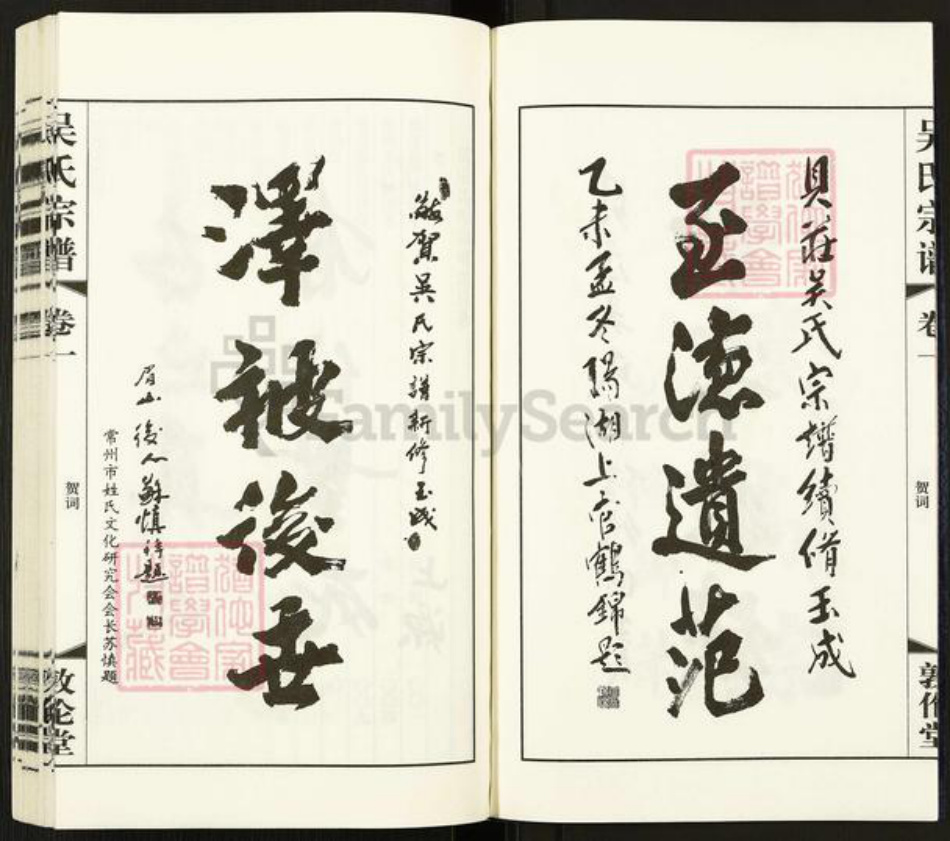 吴氏宗谱
卷一
贺词
敦伦堂
貝莊吴氏宗譜續修玉成
至德遺范
乙未孟冬陽湖上官鶴錦題
敬賀吴氏宗譜新修玉成
澤被後垂
眉山後人蘇慎 題
常州市姓氏文化研究会会长苏慎题
吴氏宗谱
卷一
贺词
敦伦堂
猶他家
譜學會
FamilySearch